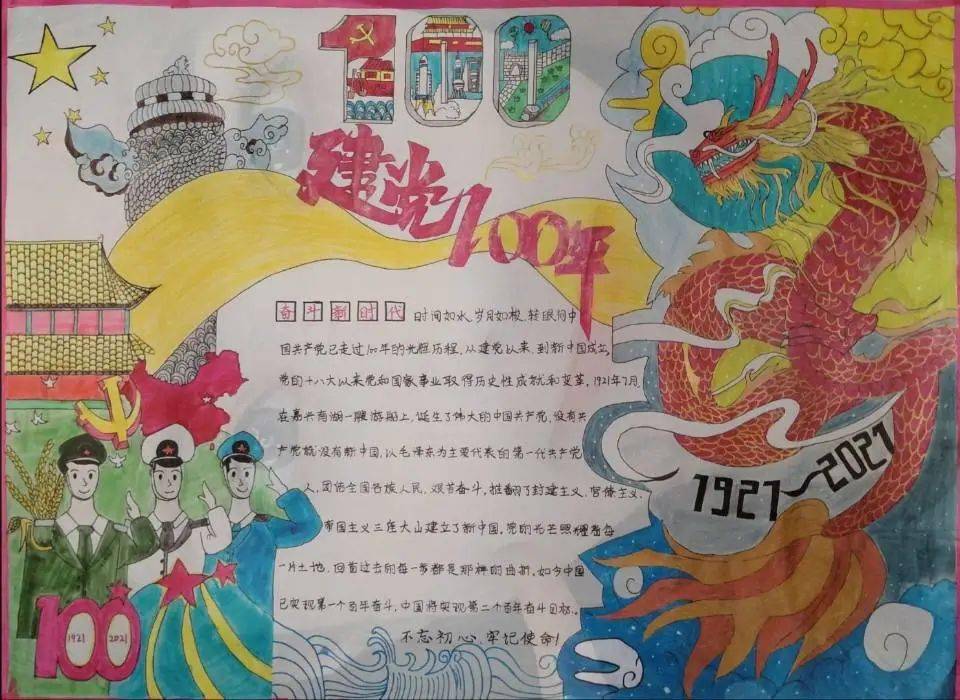 100
建党100年
奋斗新时代 时间如水,岁月如梭,转眼间中
国共产党已走过100年的光辉历程,从建党以来,到新中国成立,
党的十八大以来党和国家事业取得历史性成就和变革,1921年7月
在嘉兴南湖一艘游船上,诞生了伟大的中国共产党,没有共
产党就没有新中国,以毛泽东为主要代表的第一代共产党
人,团结全国各族人民,艰苦奋斗,推翻了封建主义,官僚主义,
帝国主义三座大山建立了新中国,党的光芒照耀着每
一片土地,回首过去的每一步都是那样的曲折,如今中国
已实现第一个百年奋斗,中国将实现第二个百年奋斗目标。
不忘初心,牢记使命!
1921~2021
100
1921 2021